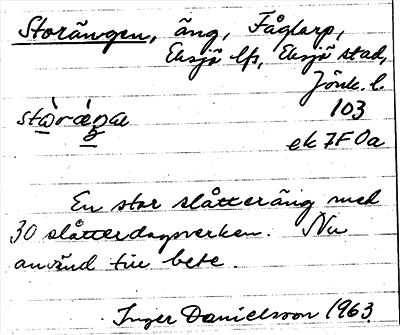 Storängen, äng, Fåglarp,
Eksjö lfs, Eksjö stad,
Jönk. l.
103
ek 7F0a
En stor slåtteräng med
30 slåtterdagsverken. Nu
använd till bete.
Inger Danielsson 1963